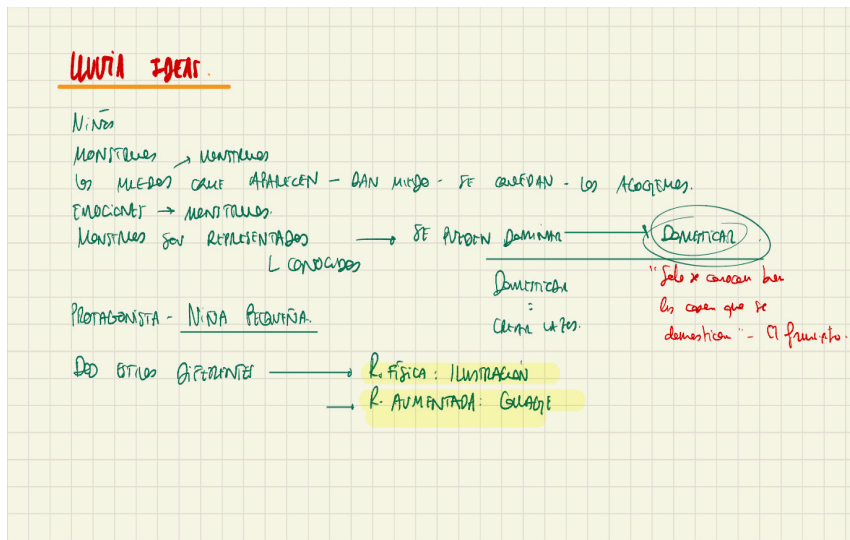 LLUVIA IDEAS.
NIÑOS
MONSTRUOS → MONSTRUOS
LOS MIEDOS QUE APARECEN - DAN MIEDO - SE QUEDAN - LOS ACOGEMOS.
EMOCIONES → MONSTRUOS.
MONSTRUOS SON REPRESENTADOS → SE PUEDEN DOMINAR → DOMESTICAR.
L CONOCIDOS
DOMESTICAR
=
CREAR LAZOS.
"Solo se conocen bien
las cosas que se
domestican" - El principito.
PROTAGONISTA - NIÑA PEQUEÑA.
DOS ESTILOS DIFERENTES → R. FÍSICA: ILUSTRACIÓN
→ R. AUMENTADA: COLLAGE